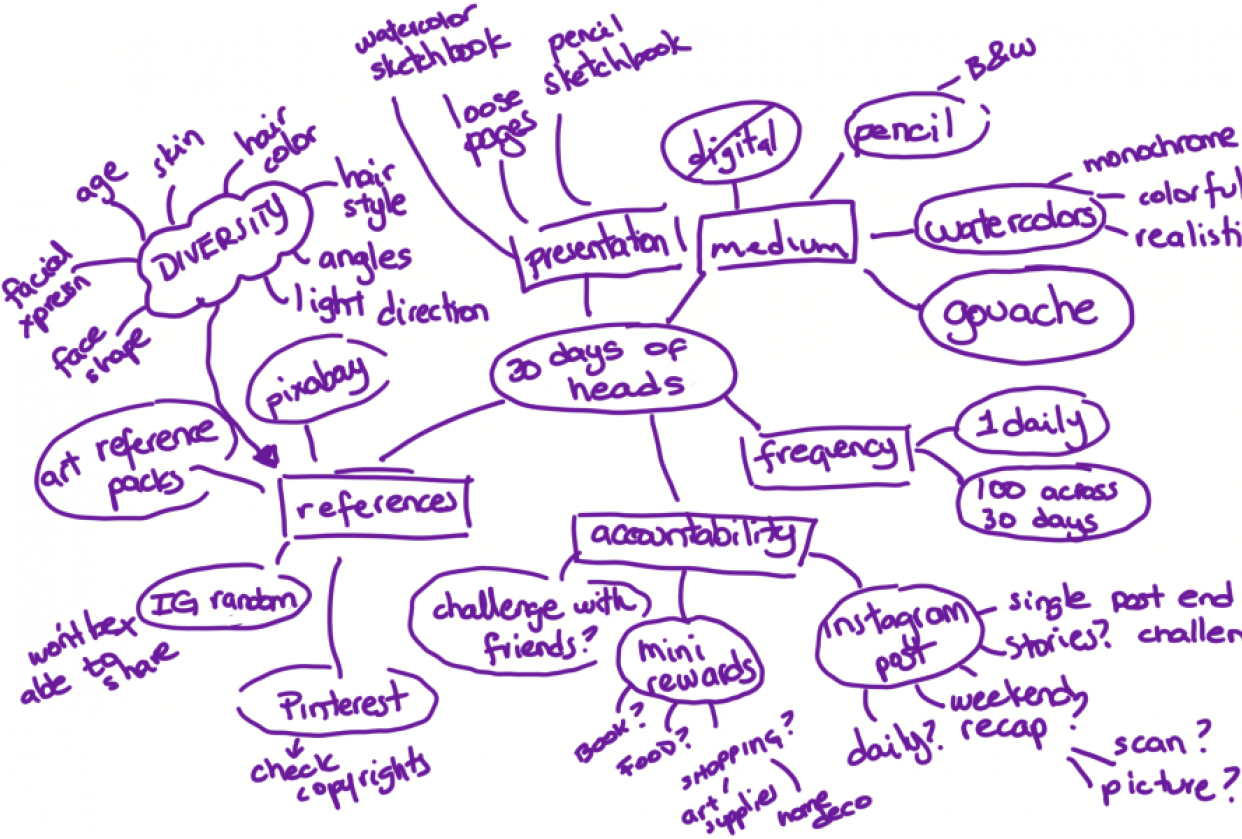 watercolor
sketchbook
pencil
sketchbook
loose
pages
B&W
digital
pencil
monochrome
colorful
realisti
watercolors
gouache
hair
color
skin
age
hair
style
DIVERSITY
angles
light direction
facial
xpressn
face
shape
presentation
medium
30 days of
heads
pixabay
art reference
packs
references
frequency
1 daily
100 across
30 days
accountability
IG random
won't be
able to
share
Pinterest
check
copyrights
challenge with
friends?
mini
rewards
BOOK?
FOOD?
SHOPPING?
art
supplies
home
deco
instagram
post
single post end
stories? challen
weekend
recap?
daily?
scan?
picture?